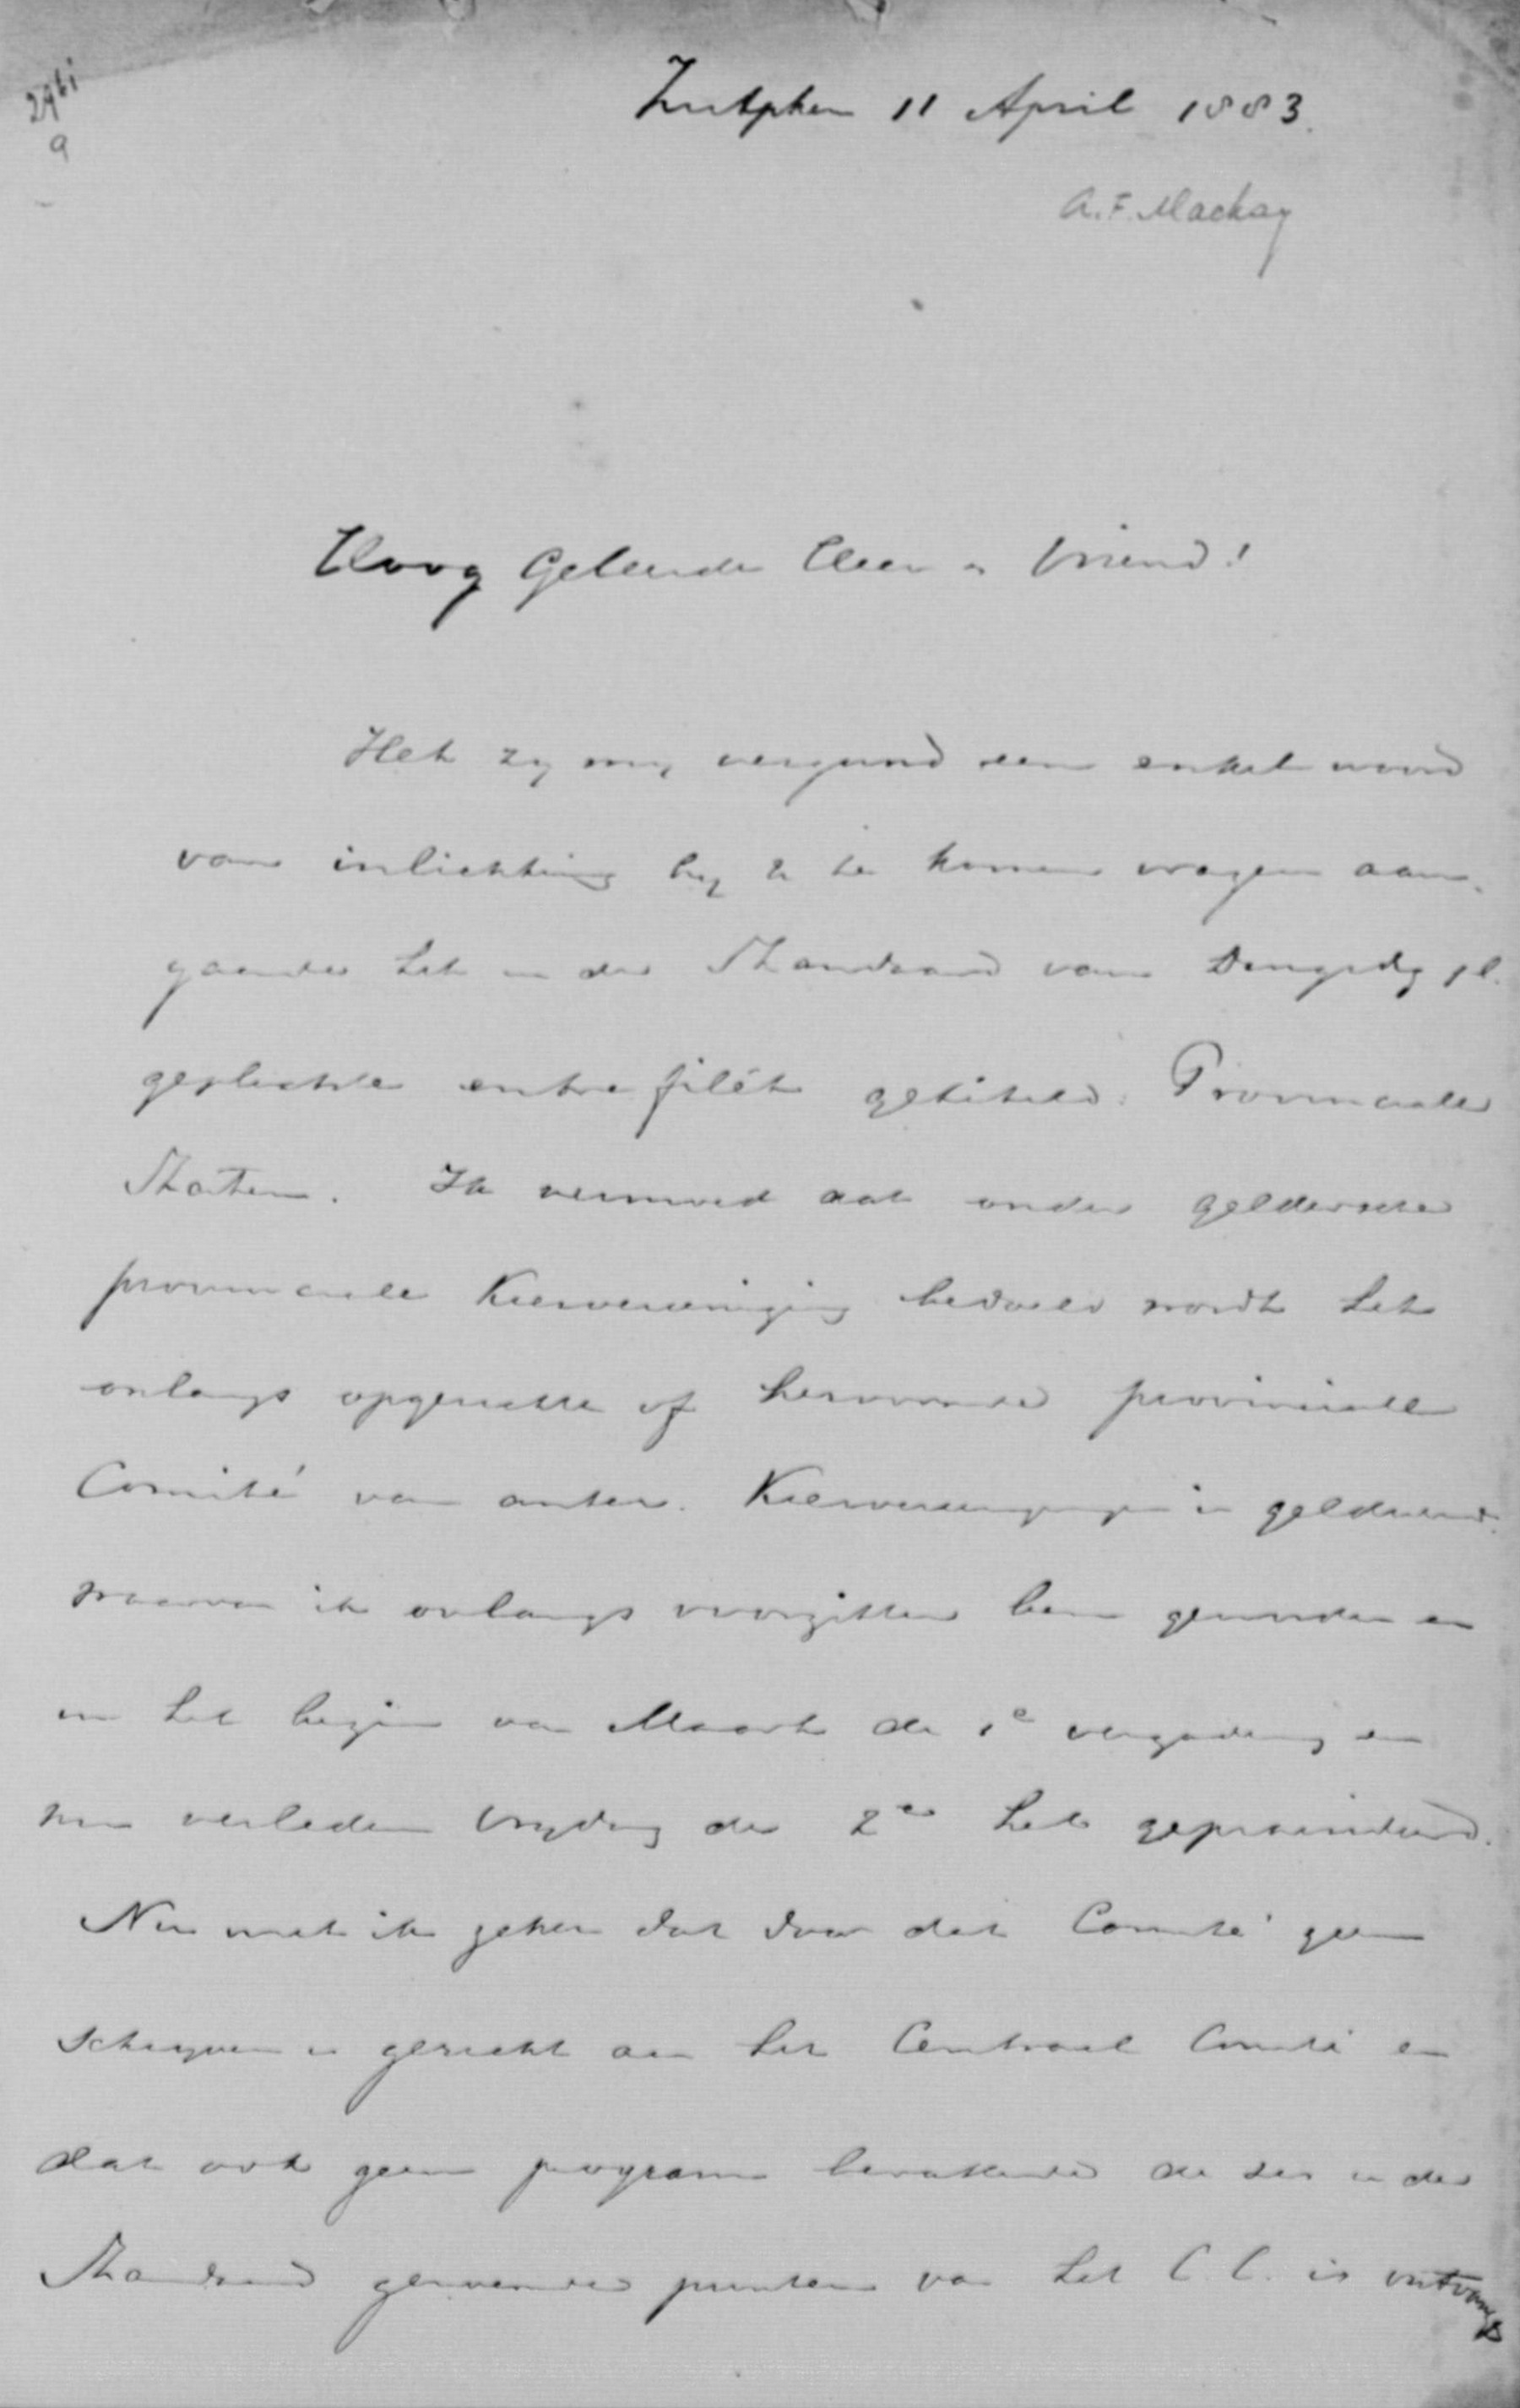 2961
a
Zutphen 11 April 1883.
A. F. Mackay
Hoog Geleerde Heer en Vriend!
Het zy my vergund een enkel woord
van inlichting by U te komen vragen aan-
gaande het in de Standaard van Dingsdg jl.
geplaatste entrefilét getiteld: Provinciale
Staten. Ik vermoed dat onder geldersche
provinciale Kiesvereeniging bedoeld wordt het
onlangs opgerichte of hervormde provinciale
Comité van antirev. Kiesvereenigingen in gelderland.
waarvan ik onlangs voorzitter ben geworden en
in het begin van Maart de 1e vergadering en
nu verleden Vrydag de 2e heb gepresideerd.
Nu weet ik zeker dat door dat Comité geen
schryven is gericht aan het Centraal Comité en
dat ook geen program bevattende de zes in de
Standaard genoemde punten van het C. C. is ontvangen